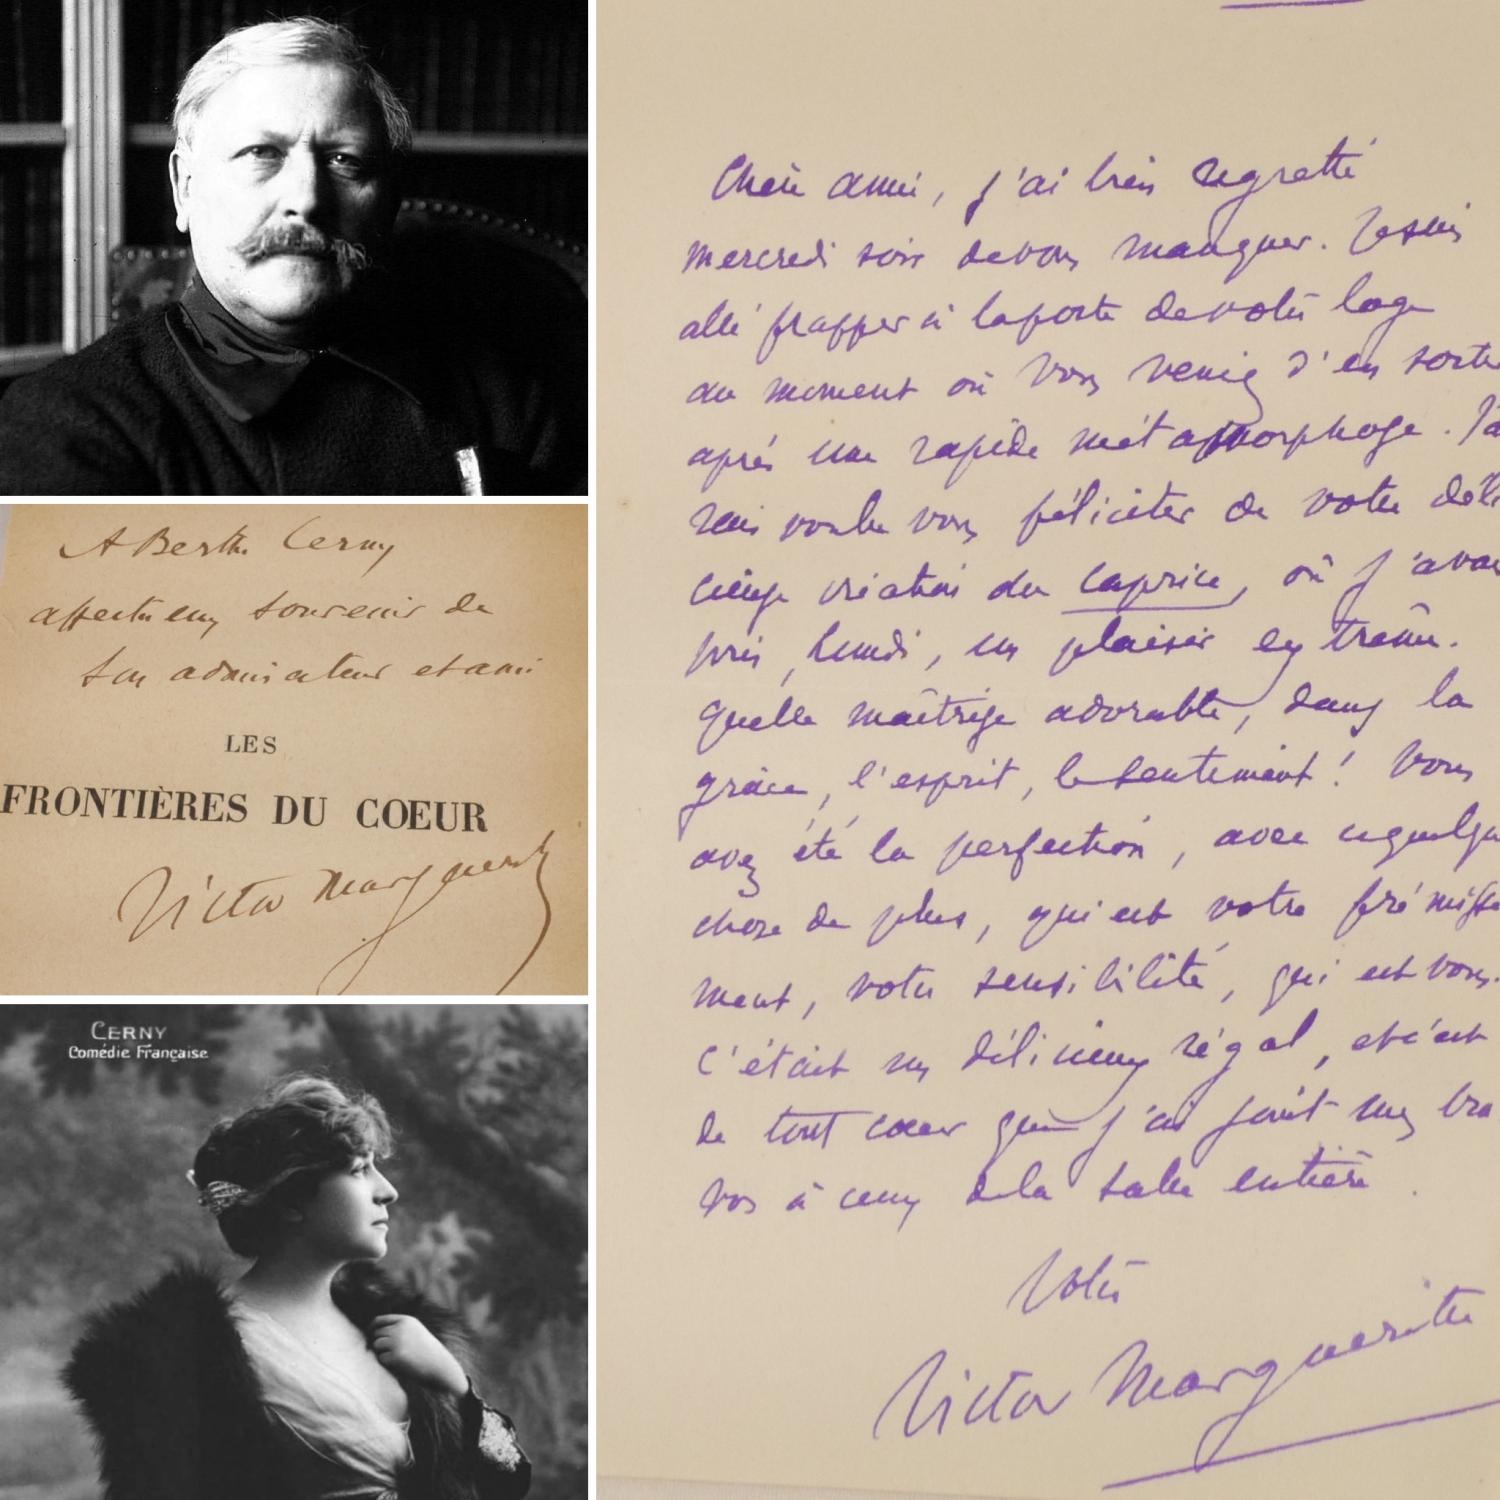 A Berthe Cerny
affectueux souvenir de
son admirateur et ami
LES
FRONTIÈRES DU COEUR
Victor Margueritte
CERNY
Comédie Française
Chère amie, j'ai bien regretté
mercredi soir de vous manquer. Je suis
allé frapper à la porte de votre loge
au moment où vous veniez d'en sortir
après une rapide métamorphose. J'au
rais voulu vous féliciter de votre déli
cieuse création du Caprice, où j'avais
pris, lundi, un plaisir extrême.
Quelle maîtrise adorable, dans la
grâce, l'esprit, le sentiment! Vous
avez été la perfection, avec ce quelque
chose de plus, qui est votre frémisse
ment, votre sensibilité, qui est vous.
C'était un délicieux régal, et c'est
de tout cœur que j'ai joint mes bra
vos à ceux de la salle entière.
Votre
Victor Margueritte